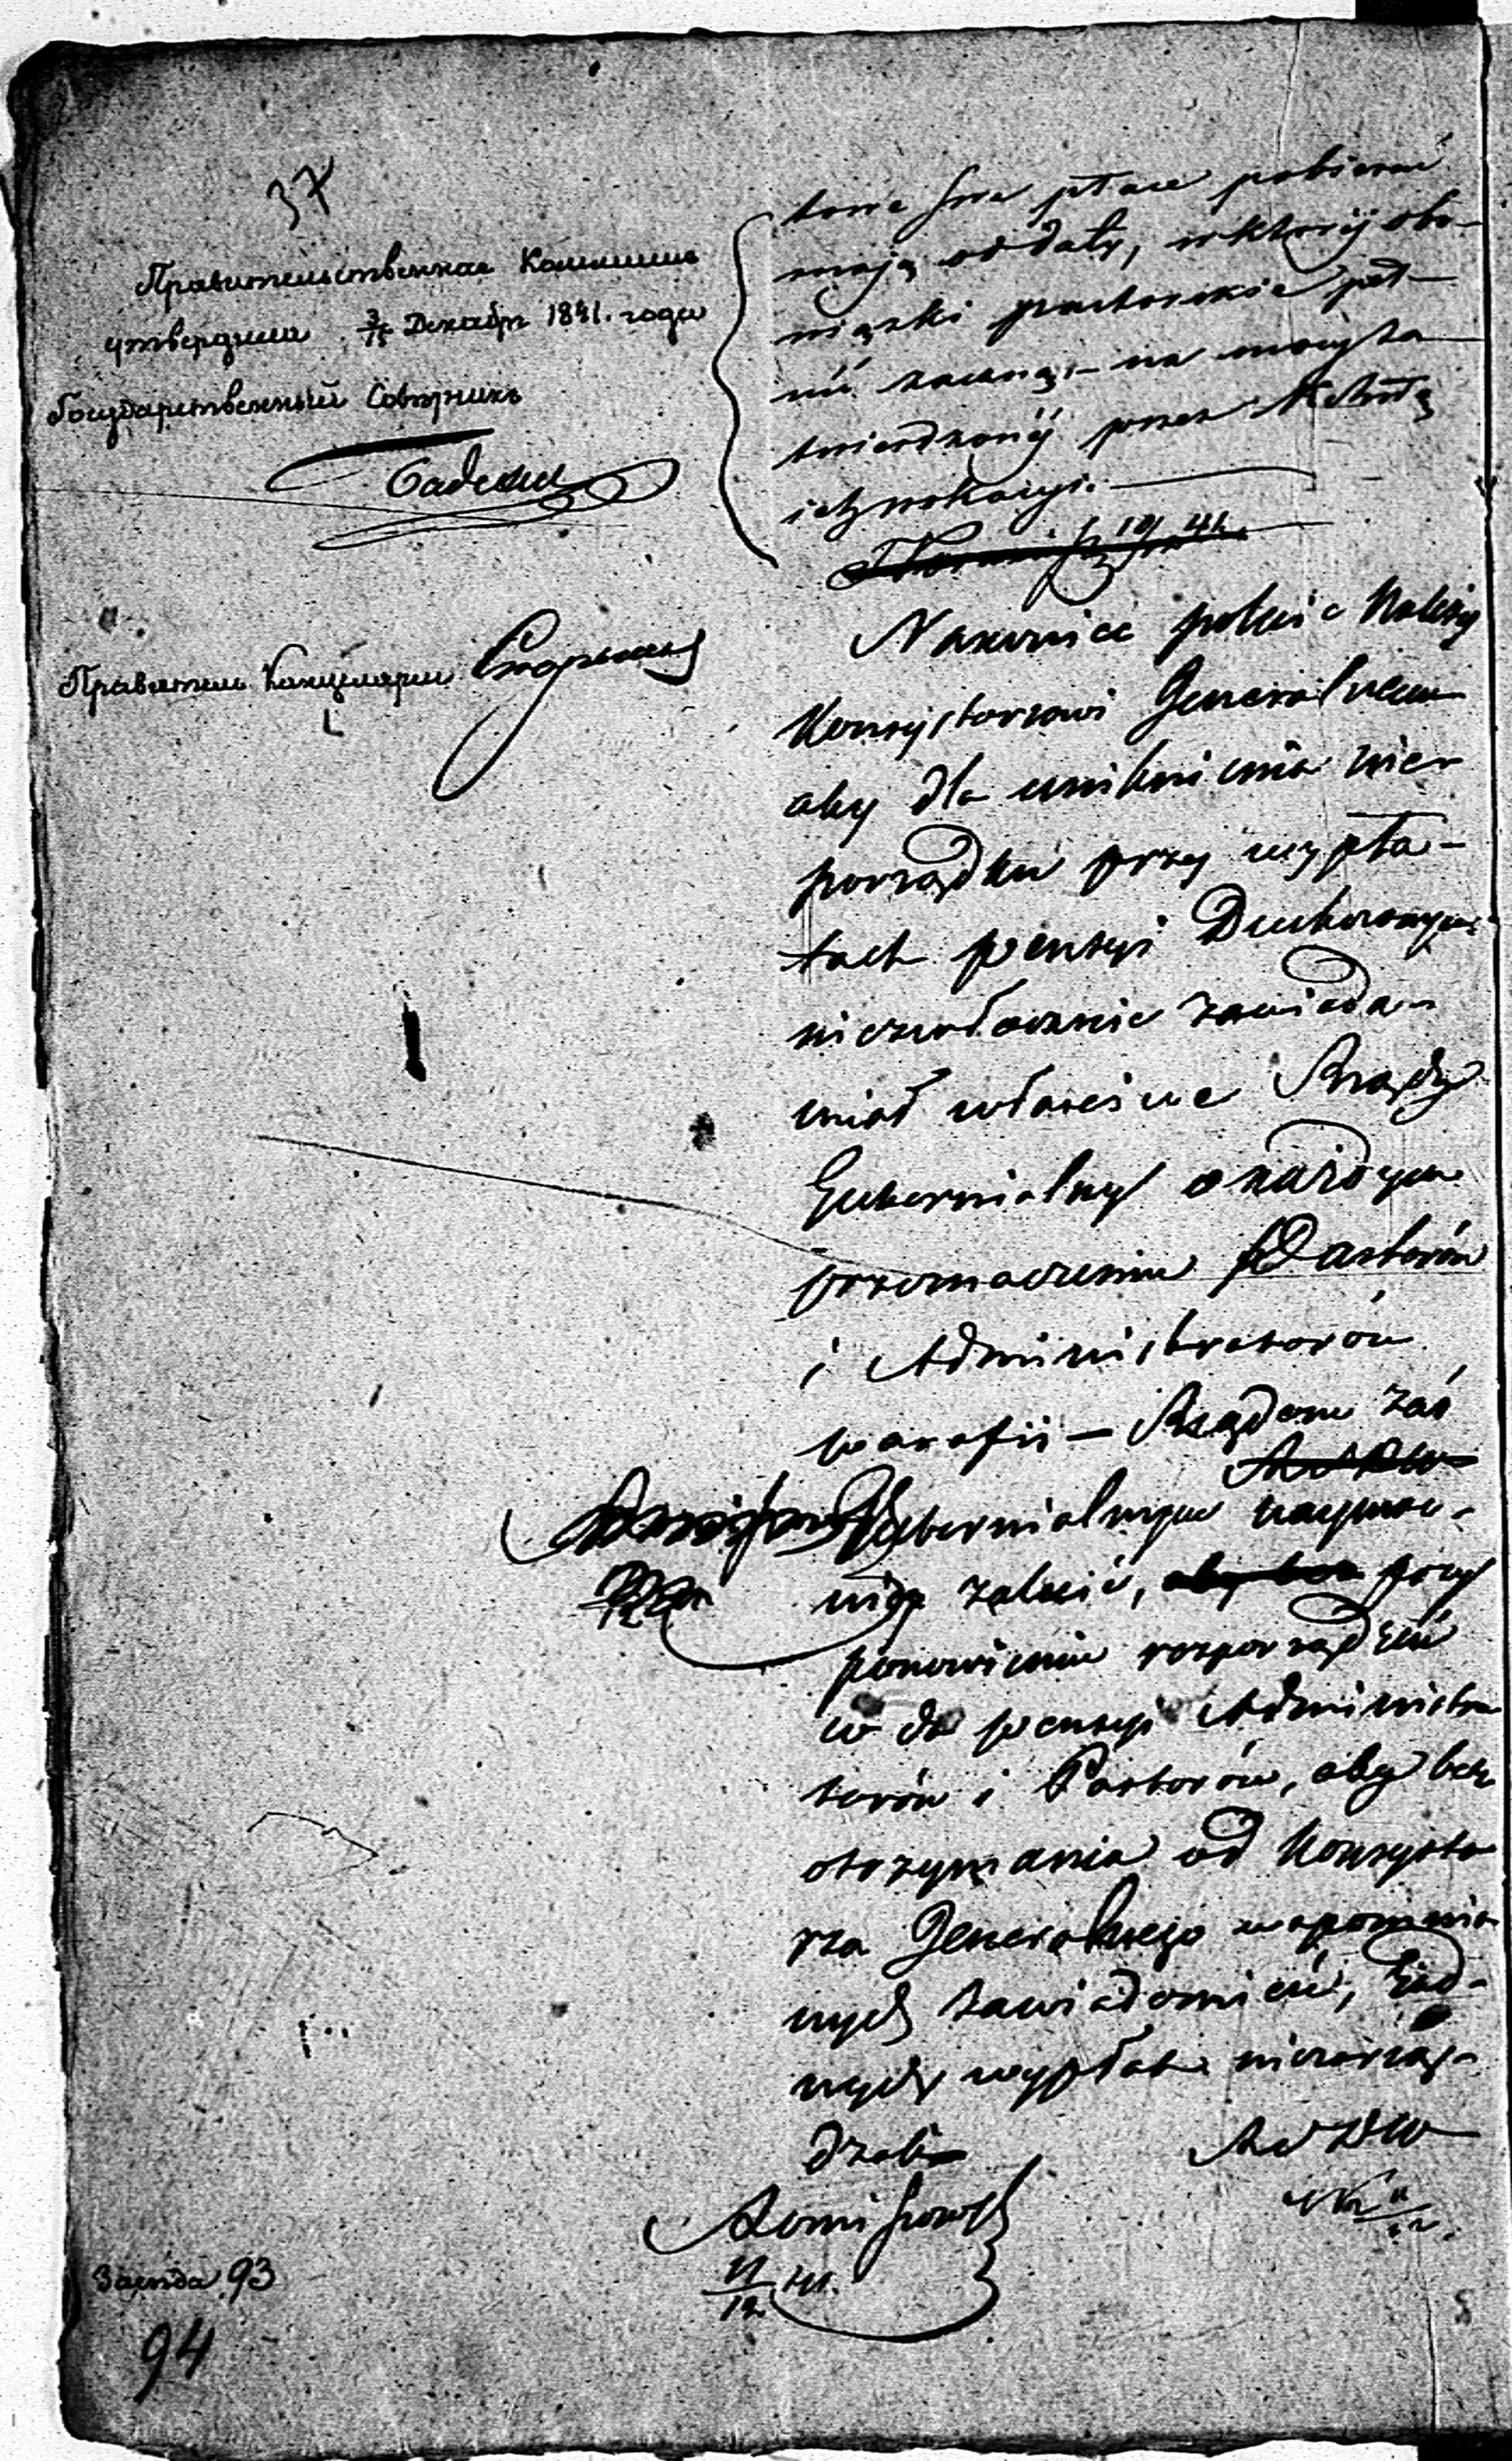 37
Правительственная Коммисія
утвердила 3/15 Декабря 1841. года
Государственный Совѣтникъ
Правитель Канцеляріи
torowie swe płace pobierać
mają od daty, w którij obo-
wiązki pastorskie peł-
nić zaczną, – na mocy za-
twierdzonéj przez Władzę
ich wokacyi. –
Nakoniec polecić należy
Konsystorzowi Generalnemu
aby dla uniknienia nie-
porządku przy wypła-
tach pensyi Duchownym
niezwłocznie zawiada-
miał właściwe Rządy
Gubernialny o każdym
przeznaczeniu Pastorów
i Administratorów
parafii – Rządom zaś
Gubernialnym
zalecić, aby bez przy
ponowieniu rozporządzeń
co do pensyi Administra
torów i Pastorów, aby bez
otrzymania od Konsysto
rza Generalnego wspomnio
nych zawiadomień, żad-
nych wypłat niezarzą-
dzali
11/12 41.
93
94